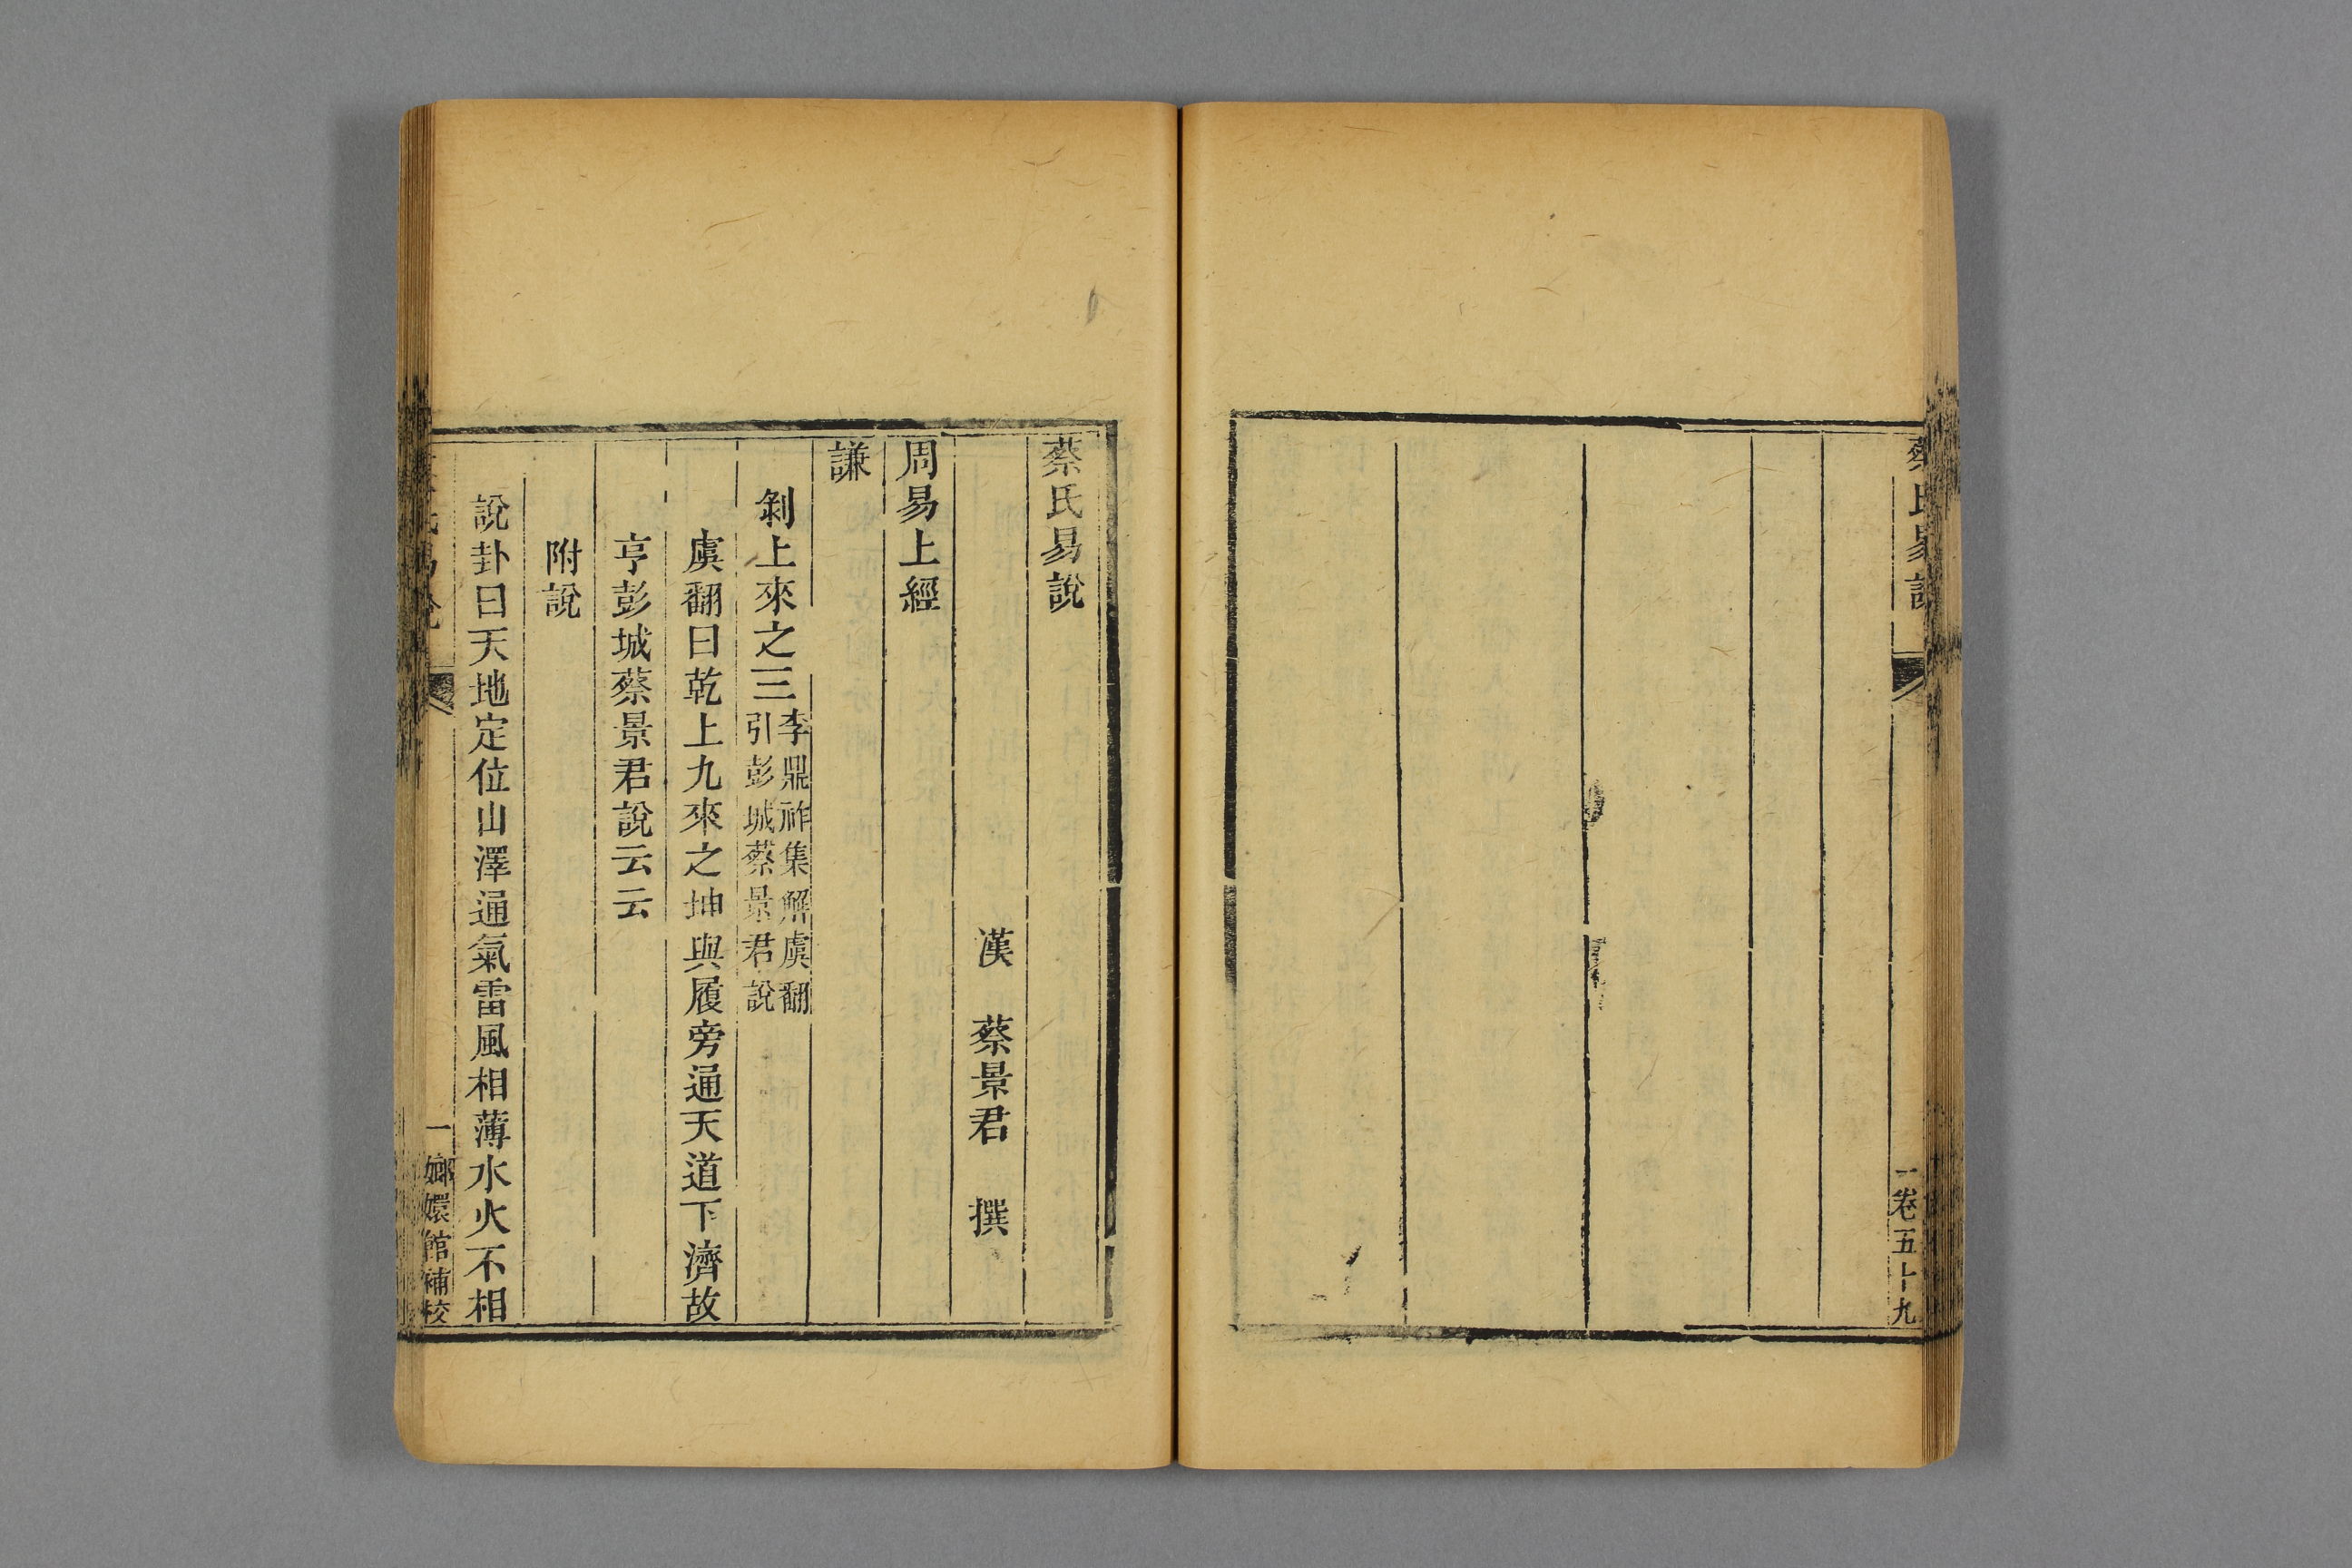 蔡氏易說
一 卷五十九
蔡氏易說
漢 蔡景君 撰
周易上經
謙
剝上來之三李鼎祚集解虞翻
引彭城蔡景君說
虞翻曰乾上九來之坤與履旁通天道下濟故
亨彭城蔡景君說云云
附說
說卦曰天地定位山澤通氣雷風相薄水火不相
一 嫏嬛館補校